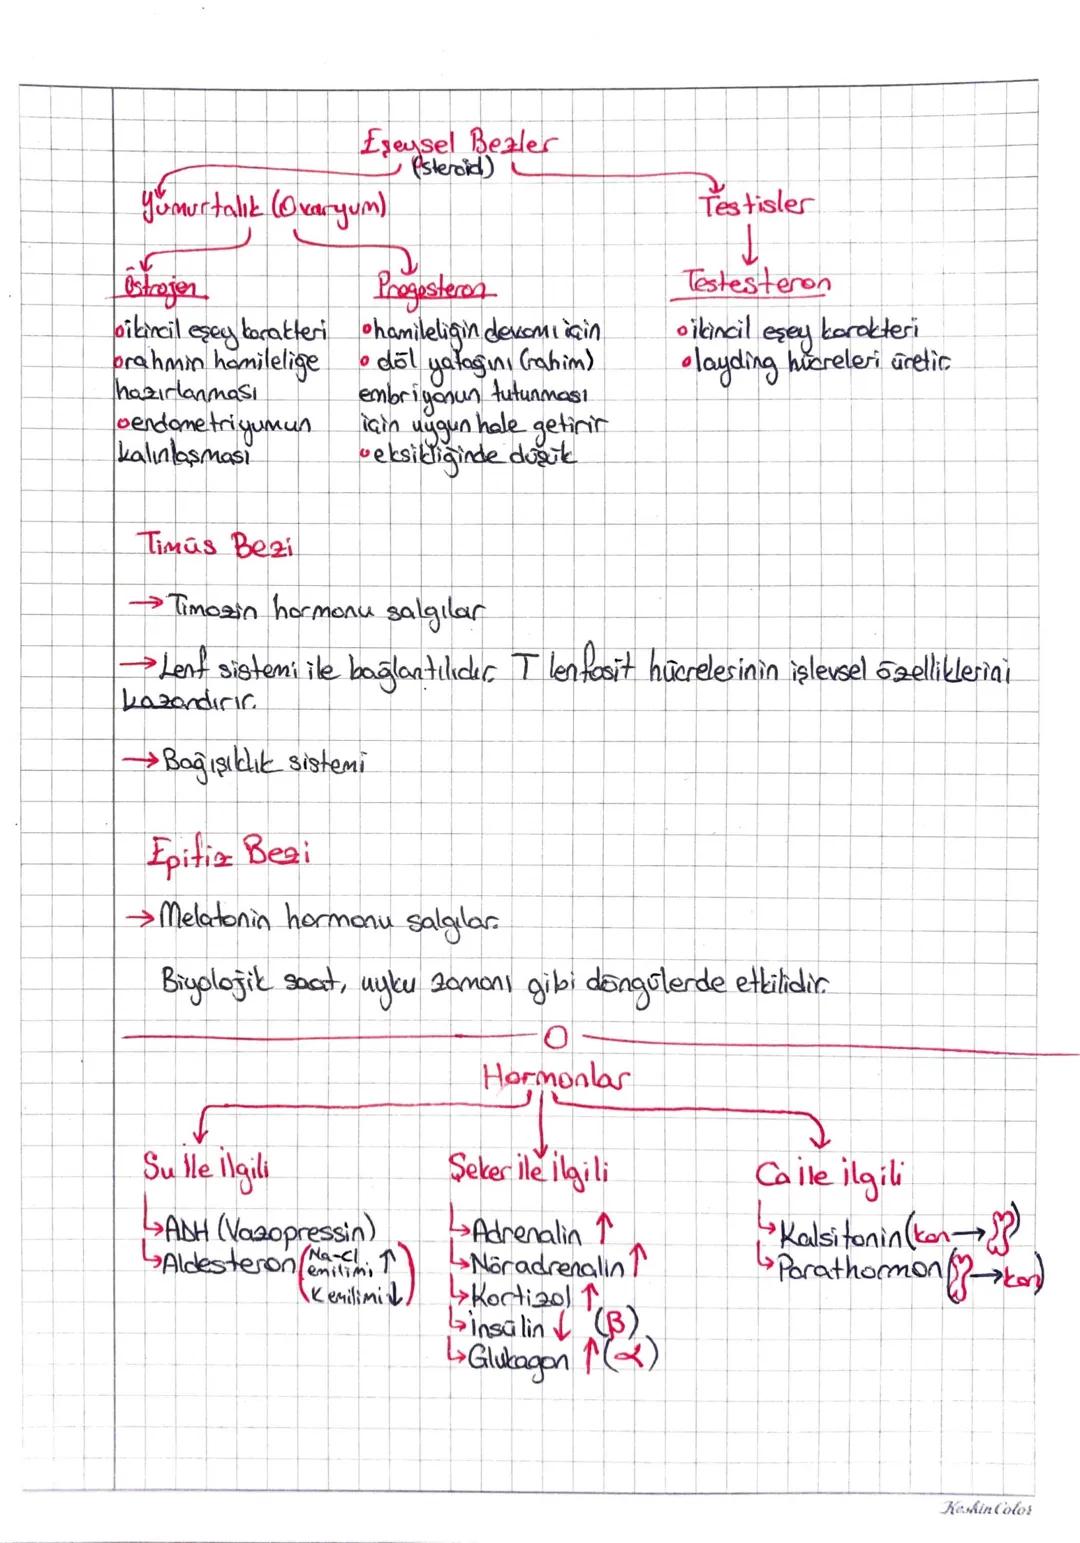 Eşeysel Bezler
(steroid)
Yumurtalık (Ovaryum)
Testisler
Östrojen
Progesteron
Testesteron
ikincil eşey karakteri
rahmin hamileliğe
hazırlanması
endometriyumun
kalınlaşması
hamileliğin devamı için
döl yatağını (rahim)
embriyonun tutunması
için uygun hale getirir
eksikliğinde düşük
ikincil eşey karakteri
layding hücreleri üretir.
Timüs Bezi
→ Timozin hormonu salgılar
→ Lenf sistemi ile bağlantılıdır. T lenfosit hücrelerinin işlevsel özelliklerini
kazandırır.
→ Bağışıklık sistemi
Epifiz Bezi
→ Melatonin hormonu salgılar.
Biyolojik saat, uyku zamanı gibi döngülerde etkilidir.
Hormonlar
Su ile ilgili
↳ ADH (Vazopressin)
↳ Aldesteron (Na-Cl emilimi ↑
(K emilimi ↓)
Şeker ile ilgili
↳ Adrenalin ↑
↳ Nöradrenalin ↑
↳ Kortizol ↑
↳ insülin ↓ (β)
↳ Glukagon ↑ (α)
Ca ile ilgili
↳ Kalsitonin (kan → )
↳ Parathormon ( → kan)
KeskinColor